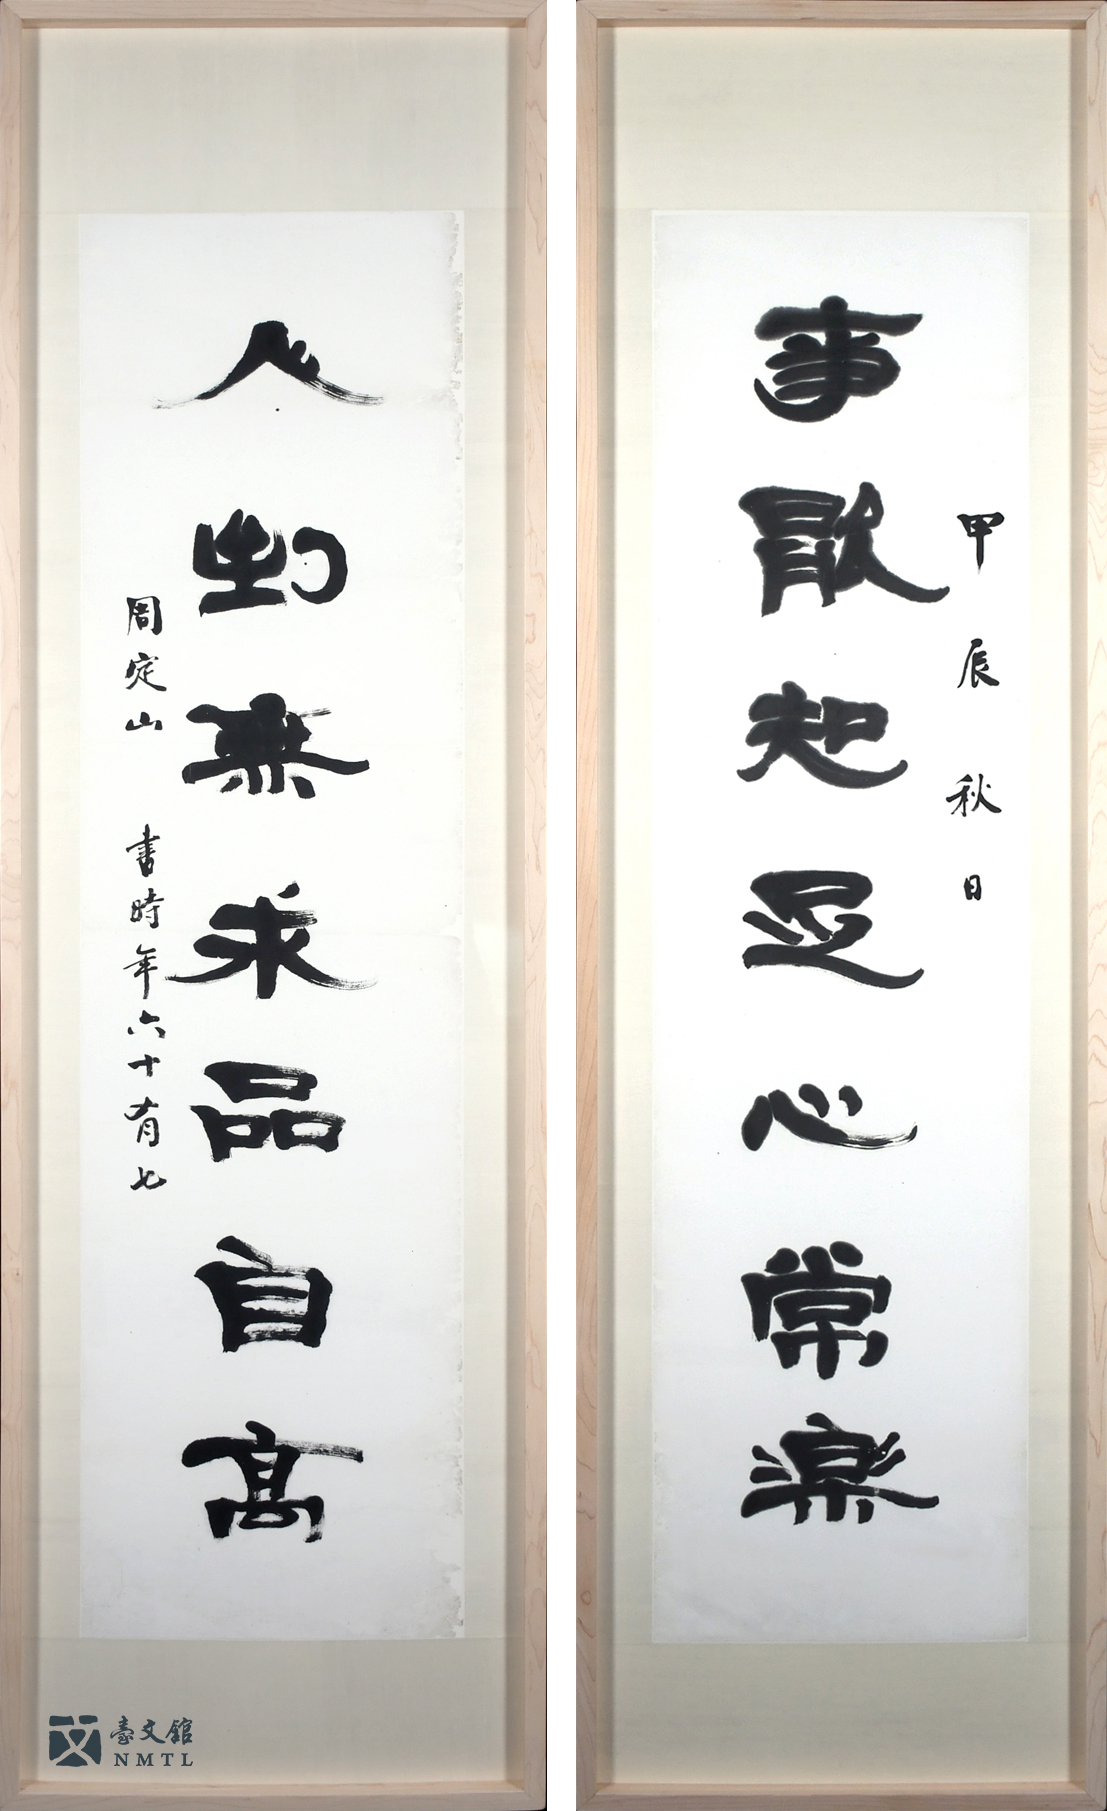 甲辰秋日
事能知足心常樂
人到無求品自高
周定山 書時年六十有七
臺文館
NMTL